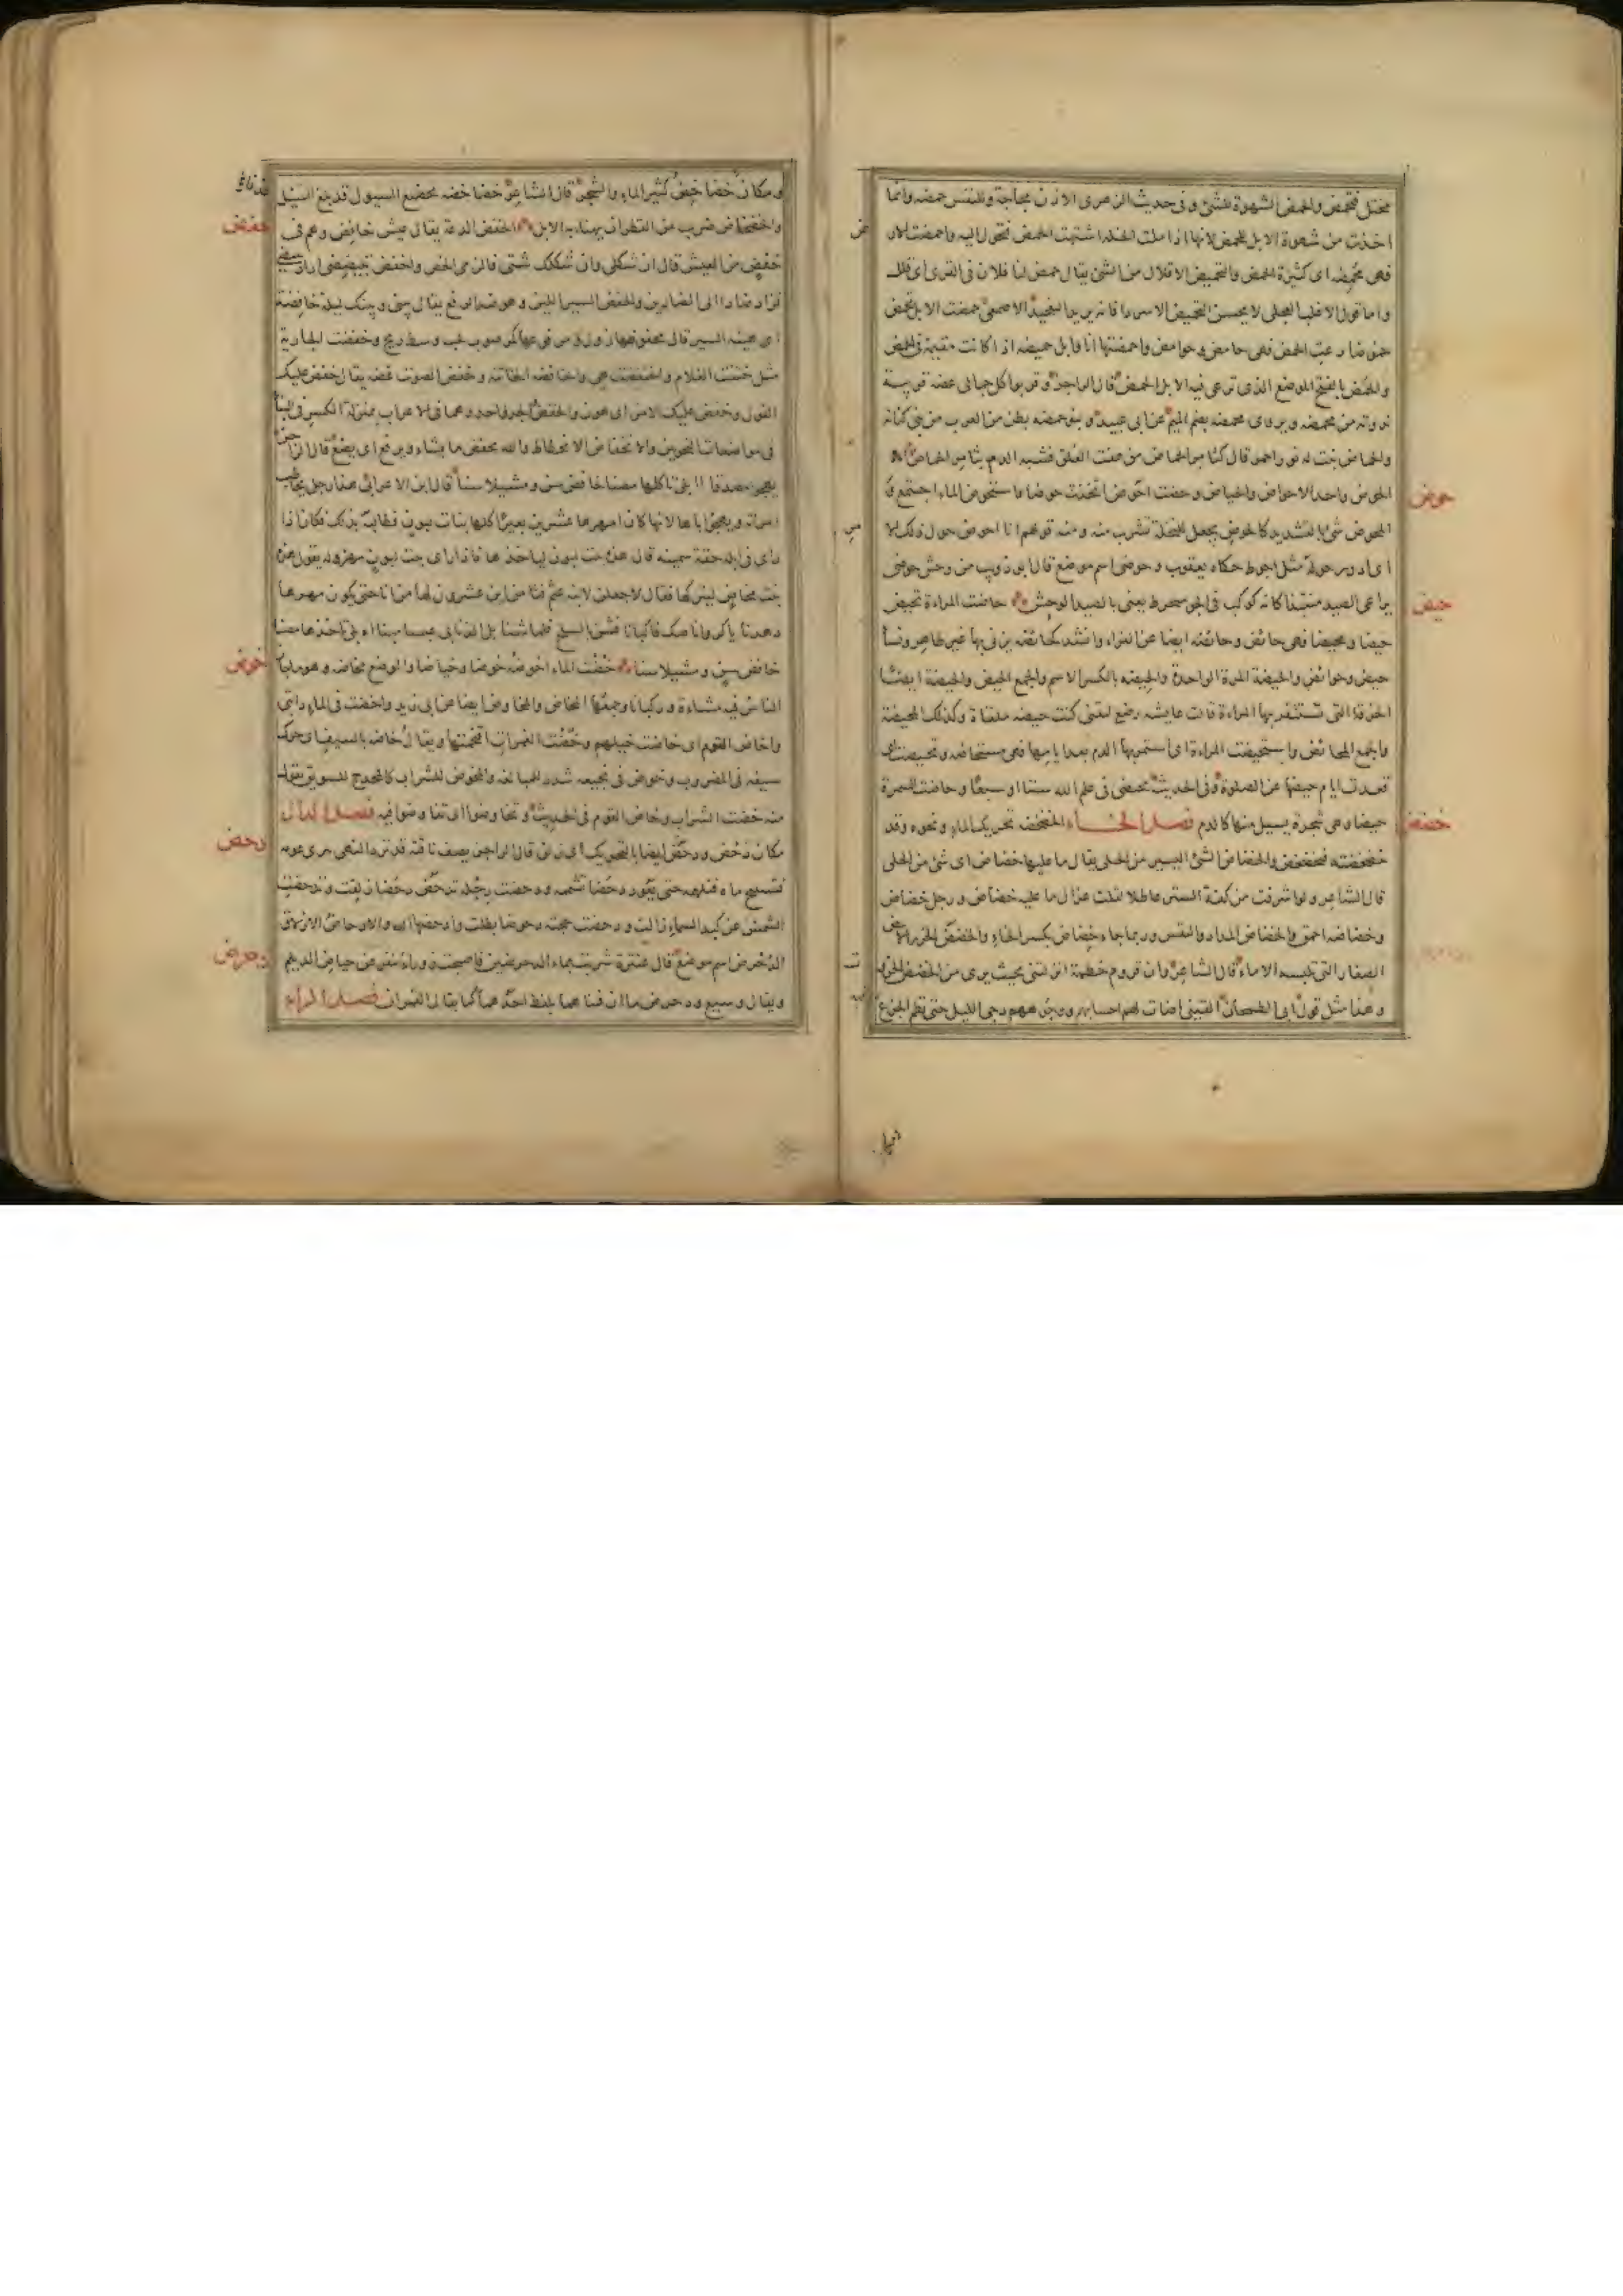 فتحمض والحمض الشهوة للشئ وفى حديث الزهرى الاذن مجاجة وللنفس حمضه وانما
اخذت من شهوة الابل للحمض لانها اذا ملت الخلة اشتهت الحمض فتحول اليه واحمضت الارض
فهى محمضه اى كثيرة الحمض والتحميض الاقلال من الشئ يقال حمض لنا فلان فى القرى اى قلل
واما قول الاغلب العجلى لا يحسن التحميض الا سردا فانه يريد التفخيذ الاصمعى حمضت الابل تحمض
حموضا رعت الحمض فهى حامض وحوامض واحمضتها انا وابل حميضه اذا كانت مقيمة فى الحمض
والمحمض بالفتح الموضع الذى ترعى فيه الابل الحمض قال الراجز وقربوا كل جمالى عضه قريبة
ندوته من محمضه ويروى محمضه بضم الميم عن ابى عبيد وبنو حمضه بطن من العرب من بنى كنانة
والحماض نبت له نور احمر قال كثامر الحماض من هفت العلق فشبه الدم بثامر الحماض
حوض
الحوض واحد الاحواض والحياض وحضت احوض اتخذت حوضا واستحوض الماء اجتمع و
المحوض شئ بالتشديد كالحوض يجعل للنخلة تشرب منه ومنه قولهم انا احوض حول ذلك الامر
اى ادور حوله مثل احوط حكاه يعقوب وحوضى اسم موضع قال ابو ذويب من وحش حوضى
حيض
يراعى الصيد منتبذا كانه كوكب فى الجو منحرط يعنى بالصيد الوحش حاضت المراءة تحيض
حيضا ومحيضا فهى حائض وحائضه ايضا عن الفراء وانشد كحائضه يزنى بها غير طاهر ونساء
حيض وحوائض والحيضة المرة الواحدة والحيضه بالكسر الاسم والجمع الحيض والحيضة ايضا
الخرقة التى تستثفر بها المراءة قالت عايشه رضع ليتنى كنت حيضه ملقاة وكذلك المحيضة
والجمع المحائض واستحيضت المراءة اى استمر بها الدم بعد ايامها فهى مستحاضه وتحيضت اى
قعدت ايام حيضها عن الصلوة وفى الحديث تحيضى فى علم الله ستا او سبعا وحاضت السمرة
خضض
حيضا وهى شجرة يسيل منها كالدم فصل الخاء الخضخضه تحريك الماء ونحوه وقد
خضخضته فتخضخض والخضاض الشئ اليسير من الحلى يقال ما عليها خضاض اى شئ من الحلى
قال الشاعر ولو اشرفت من كفة الستر عاطلا لقلت غزال ما عليه خضاض ورجل خضاض
وخضاضه احمق والخضاض المداد والنقس وربما جاء خضاض بكسر الخاء والخضض الخرز الابيض
الصغار التى تلبسه الاماء قال الشاعر وان قروم خطمة انزلتنى بحيث يرى من الخضض الخروت
وهذا مثل قول ابى الطمحان القينى اضاءت لهم احسابهم ووجوههم دجى الليل حتى نظم الجزع
ومكان خضاخض كثير الماء والشجر قال الشاعر خضاخضه بخضيع السيول قد بلغ السيل
خفض
والخضخاض ضرب من القطران يهناء به الابل الخفض الدعة يقال عيش خافض وهم فى
خفض من العيش قال ان شكلى وان شكلك شتى فالزمى الخص واخفضى تبيضضى اراد تبيضى
فزاد ضادا الى الضادين والخفض السير اللين وهو ضد الرفع يقال بينى وبينك ليلة خافضة
اى هينه السير قال مخفوضها زول ومرفوعها كمر صوب لجب وسط ريح وخفضت الجارية
مثل ختنت الغلام واختفضت هى والخافضه الخاتنة وخفض الصوت غضه يقال خفض عليك
القول وخفض عليك الامر اى هون والخفض والجر واحد وهما فى الاعراب بمنزلة الكسر فى البناء
فى مواضعات النحويين والانخفاض الانحطاط والله يخفض ما يشاء ويرفع اى يضع قال الراجز
يهجو مصدقا ااءبلى تاكلها مصنا خافض سن ومشيلا سنا قال ابن الاعرابى هذا رجل يخاطب
امراته ويهجو اباها لانها كان امهرها عشرين بعيرا كلها بنات لبون فطالبه بذلك فكان اذا
راى فى ابله حقة سمينه قال هذه بنت لبون لياخذها فاذا راى بنت لبون مهزوله يقول هذه
بنت مخاض ليتركها فقال
خوض
خافض سن ومشيلا سنا خضت الماء اخوضه خوضا وخياضا والموضع مخاضه وهو ما جاز
الناس فيه مشاءة وركبانا وجمعها المخاض والمخاوض ايضا عن ابى زيد واخضت فى الماء دابتى
واخاض القوم اى خاضت خيلهم وخضت الغمرات اقتحمتها ويقال خاضه بالسيف اى حرك
سيفه فى المضروب وخوض فى نجيعه شدد للمبالغه والمخوض للشراب كالمجدح للسويق تقول
منه خضت الشراب وخاض القوم فى الحديث وتخاوضوا اى تفاوضوا فيه فصل الدال
دحض
مكان دحض ودحض ايضا بالتحريك اى زلق قال الراجز يصف ناقة قد ترد النهى تنزى عومه
فتستبيح ماءه فتلهمه حتى يعود دحضا تشمه ودحضت رجله تدحض دحضا زلقت ودحضت
الشمس عن كبد السماء زالت ودحضت حجته دحوضا بطلت وادحضها الله والادحاض الازلاق
دحرض
الدحرض اسم موضع قال عنترة شربت بماء الدحرضين فاصبحت زوراء تنفر عن حياض الديلم
ويقال وسيع ودحرض ماان فثناهما بلفظ احدهما كما يقال القمران فصل الراء